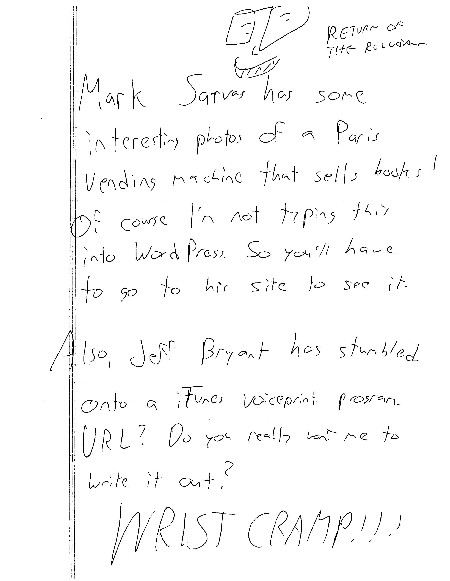 RETURN OF
THE
Mark Sarvas has some
interesting photos of a Paris
vending machine that sells books!
Of course I'm not typing this
into WordPress. So you'll have
to go to his site to see it.
Also, Jeff Bryant has stumbled
onto a iTunes voiceprint program.
URL? Do you really want me to
write it out?
WRIST CRAMP!!!